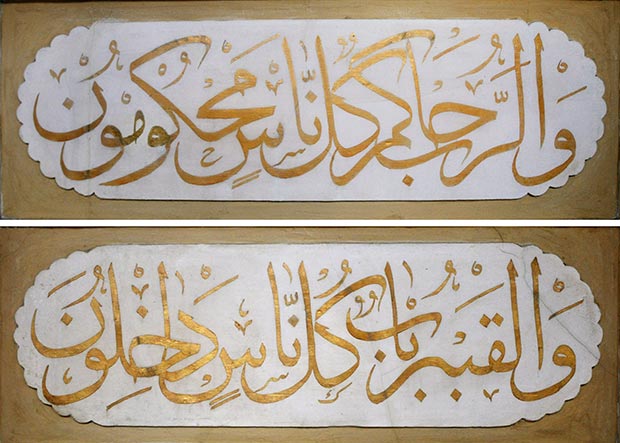 وَالرَّبُّ حَاكِمٌ كُلُّ نَّاسٍ مَحْكُومُونَ
وَالقَبْرُ بَابٌ كُلُّ نَّاسٍ دَاخِلُونَ